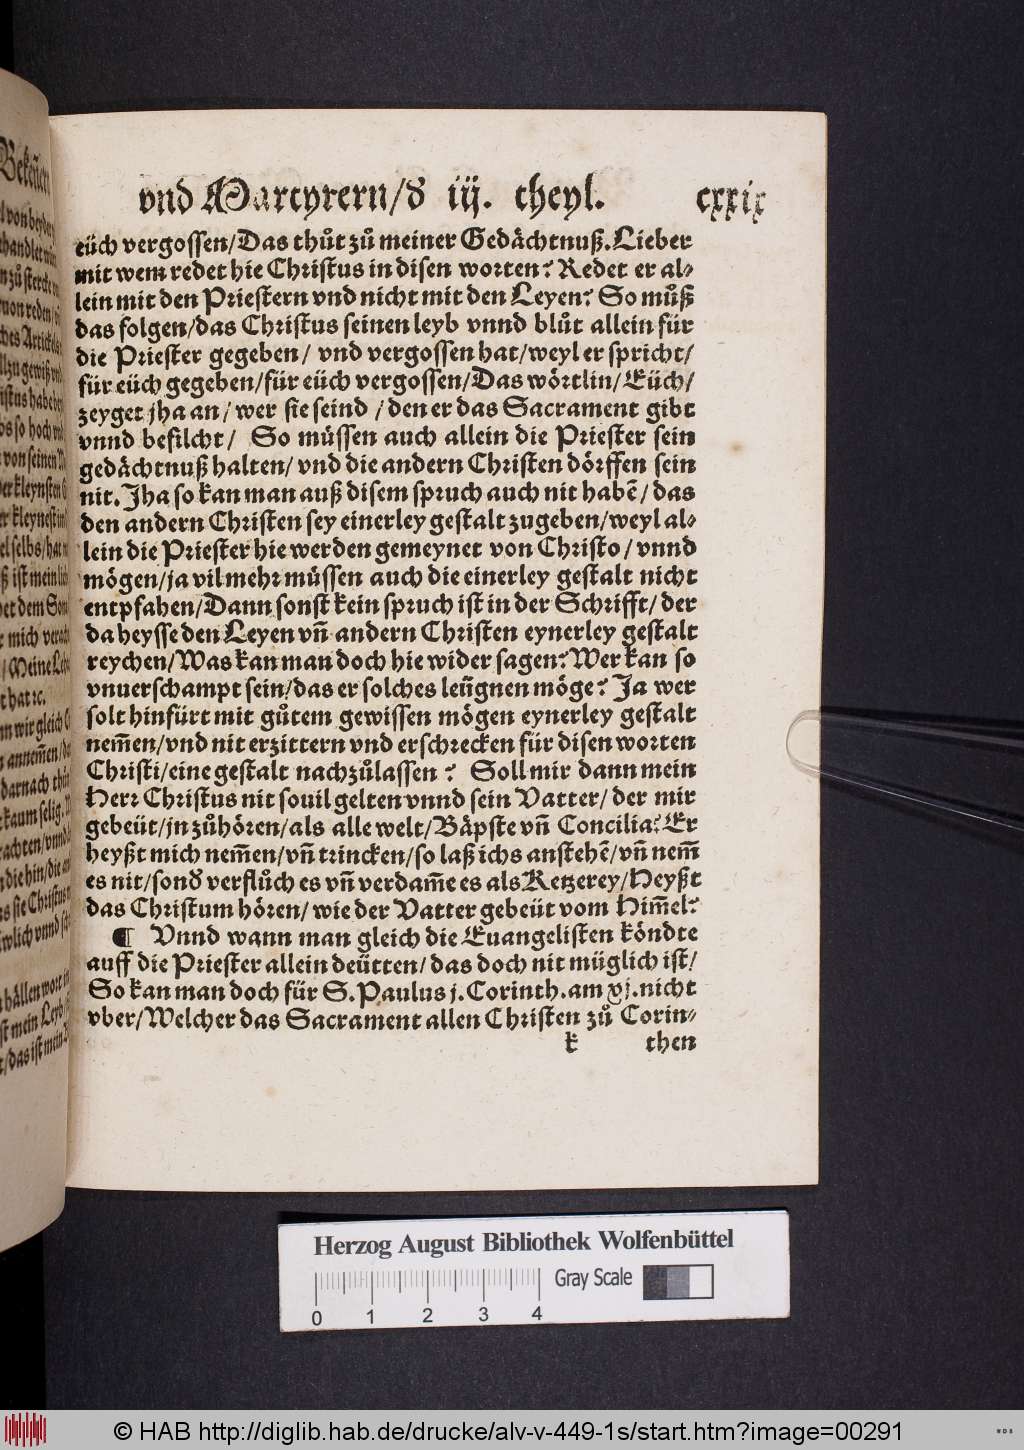 vnd Martyrern/ď iij. theyl. cxxix
eüch vergossen/Das thůt zů meiner Gedächtnuß. Lieber
mit wem redet hie Christus in disen worten? Redet er al-
lein mit den Priestern vnd nicht mit den Leyen? So můß
das folgen/das Christus seinen leyb vnnd blůt allein für
die Priester gegeben/ vnd vergossen hat/weyl er spricht/
für eüch gegeben/für eüch vergossen/Das wörtlin/Eüch/
zeyget jha an/wer sie seind/den er das Sacrament gibt
vnnd befilcht/ So müssen auch allein die Priester sein
gedächtnuß halten/ vnd die andern Christen dörffen sein
nit. Jha so kan man auß disem spruch auch nit habē/das
den andern Christen sey einerley gestalt zugeben/weyl al-
lein die Priester hie werden gemeynet von Christo/vnnd
mögen/ja vil mehr müssen auch die einerley gestalt nicht
entpfahen/Dann sonst kein spruch ist in der Schrifft/der
da heysse den Leyen vñ andern Christen eynerley gestalt
reychen/Was kan man doch hie wider sagen? Wer kan so
vnuerschampt sein/das er solches leügnen möge? Ja wer
solt hinfürt mit gůtem gewissen mögen eynerley gestalt
nem̄en/vnd nit erzittern vnd erschrecken für disen worten
Christi/eine gestalt nachzůlassen? Soll mir dann mein
Herr Christus nit souil gelten vnnd sein Vatter/der mir
gebeüt/jn zůhören/als alle welt/Bäpste vñ Concilia? Er
heyßt mich nem̄en/vñ trincken/so laß ichs anstehē/vñ nem̄
es nit/sonď verflůch es vñ verdam̄e es als Ketzerey/Heyßt
das Christum hören/wie der Vatter gebeüt vom Him̄el?
¶ Vnnd wann man gleich die Euangelisten köndte
auff die Priester allein deütten/das doch nit müglich ist/
So kan man doch für S. Paulus j. Corinth. am xj. nicht
vber/Welcher das Sacrament allen Christen zů Corin-
k then
Herzog August Bibliothek Wolfenbüttel
0 1 2 3 4 Gray Scale
© HAB http://diglib.hab.de/drucke/alv-v-449-1s/start.htm?image=00291